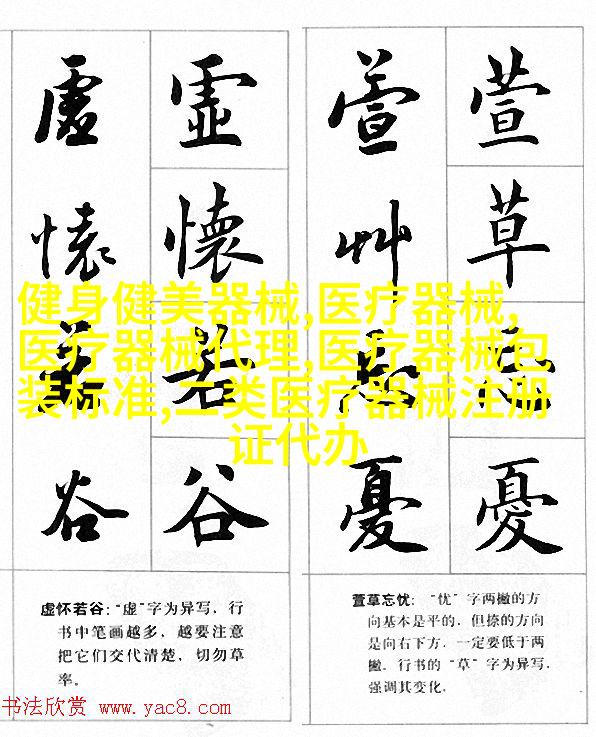 虛 虛 萱 萱
懷 懷 艸 草
若 若 忘 忘
谷 谷 憂 憂
健身健美器械,医疗器械,
医疗器械代理,医疗器械包
装标准,二类医疗器械注册
证代办
虚怀若谷：“虚”字为异写，行
书中笔画越多，越要注意
把它们交代清楚，切勿草
率。
萱草忘忧：“忧”字两撇的方
向基本是平的，但捺的方向
是向右下方，一定要低于两
撇。行书的“草”字为异写，
强调其变化。
书法欣赏 www.yac8.com